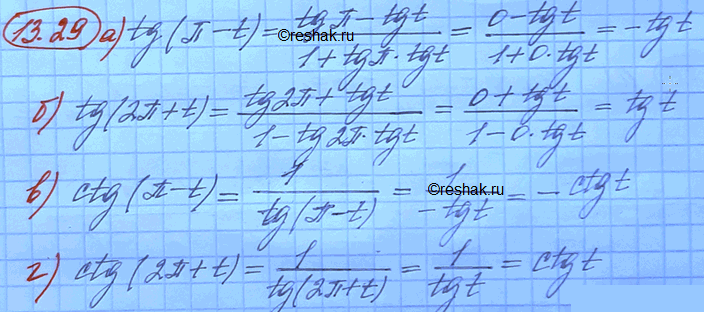 13.29 а) tg(π-t) = (tgπ - tgt)/(1 + tgπ·tgt) = (0 - tgt)/(1 + 0·tgt) = -tgt
б) tg(2π+t) = (tg2π + tgt)/(1 - tg2π·tgt) = (0 + tgt)/(1 - 0·tgt) = tgt
©reshak.ru
в) ctg(π-t) = 1/tg(π-t) = 1/-tgt = -ctgt
г) ctg(2π+t) = 1/tg(2π+t) = 1/tgt = ctgt